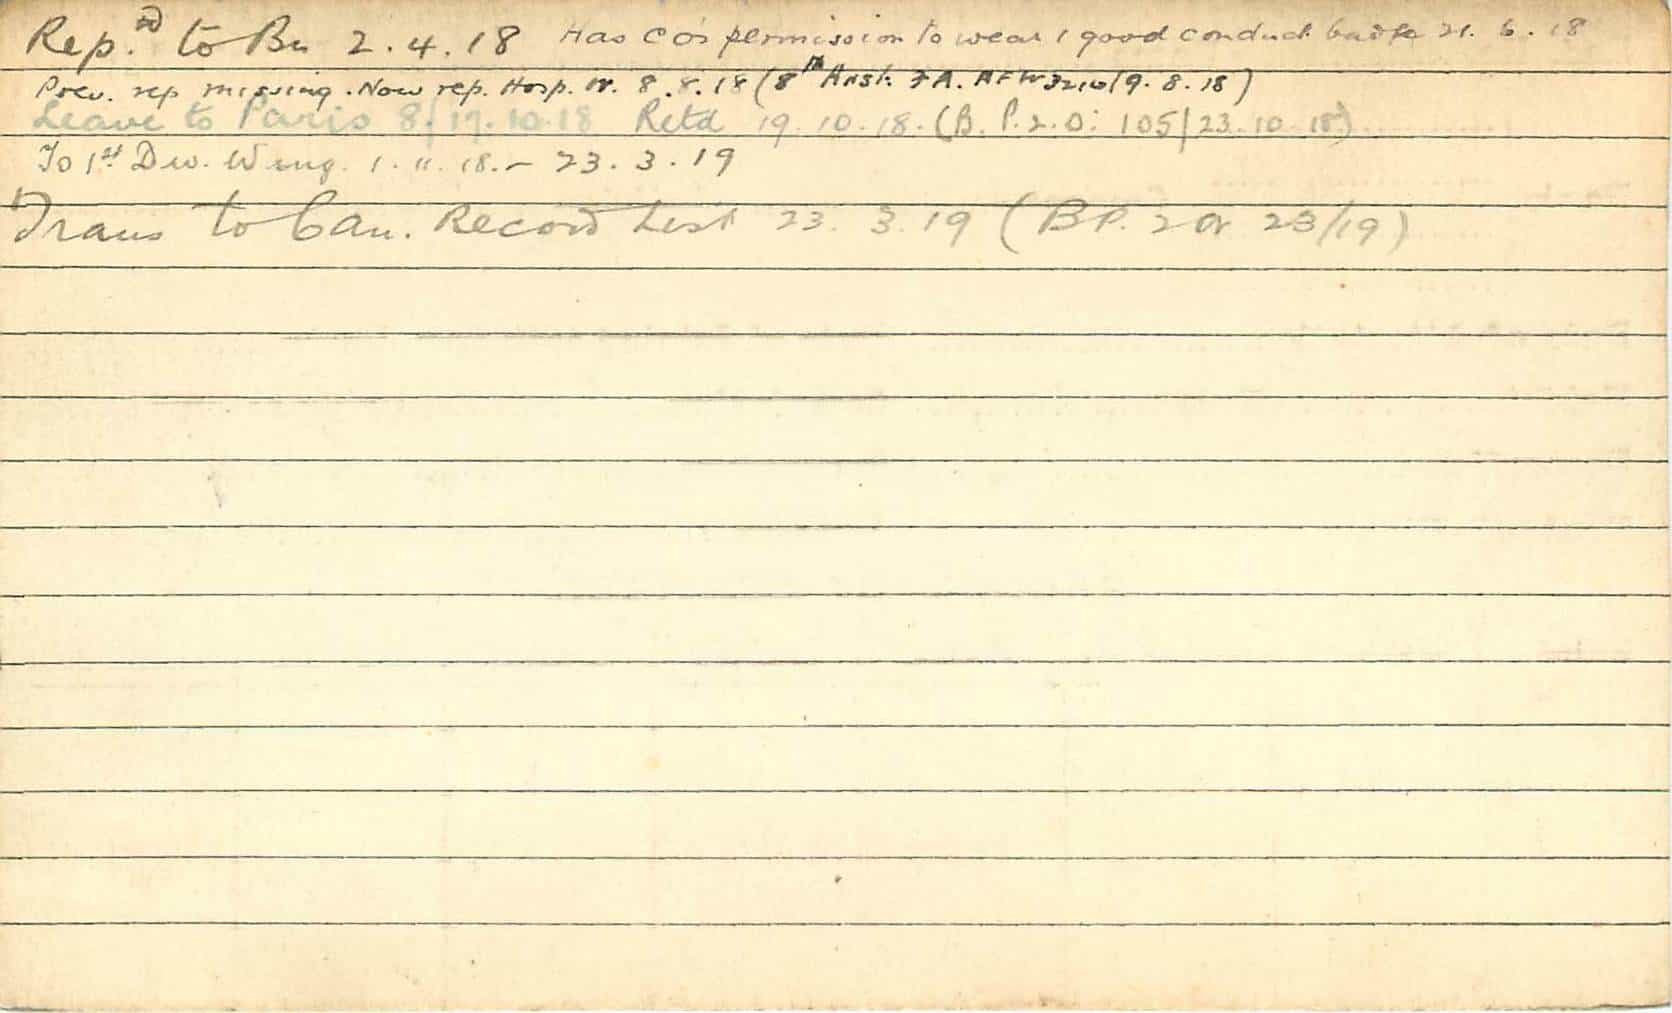 Rep.d to Bn 2.4.18 Has C O's permission to wear 1 good conduct badge 21.6.18
Prev. rep missing. Now rep. Hosp. W. 8.8.18 (8th Aust. F A. AFW3210/9.8.18)
Leave to Paris 8/17.10.18 Retd 19.10.18. (B. P.2.O: 105/23.10.18)
To 1st Div. Wing. 1.11.18. - 23.3.19
Trans to Can. Record List 23.3.19 (BP. 2 Or 23/19)